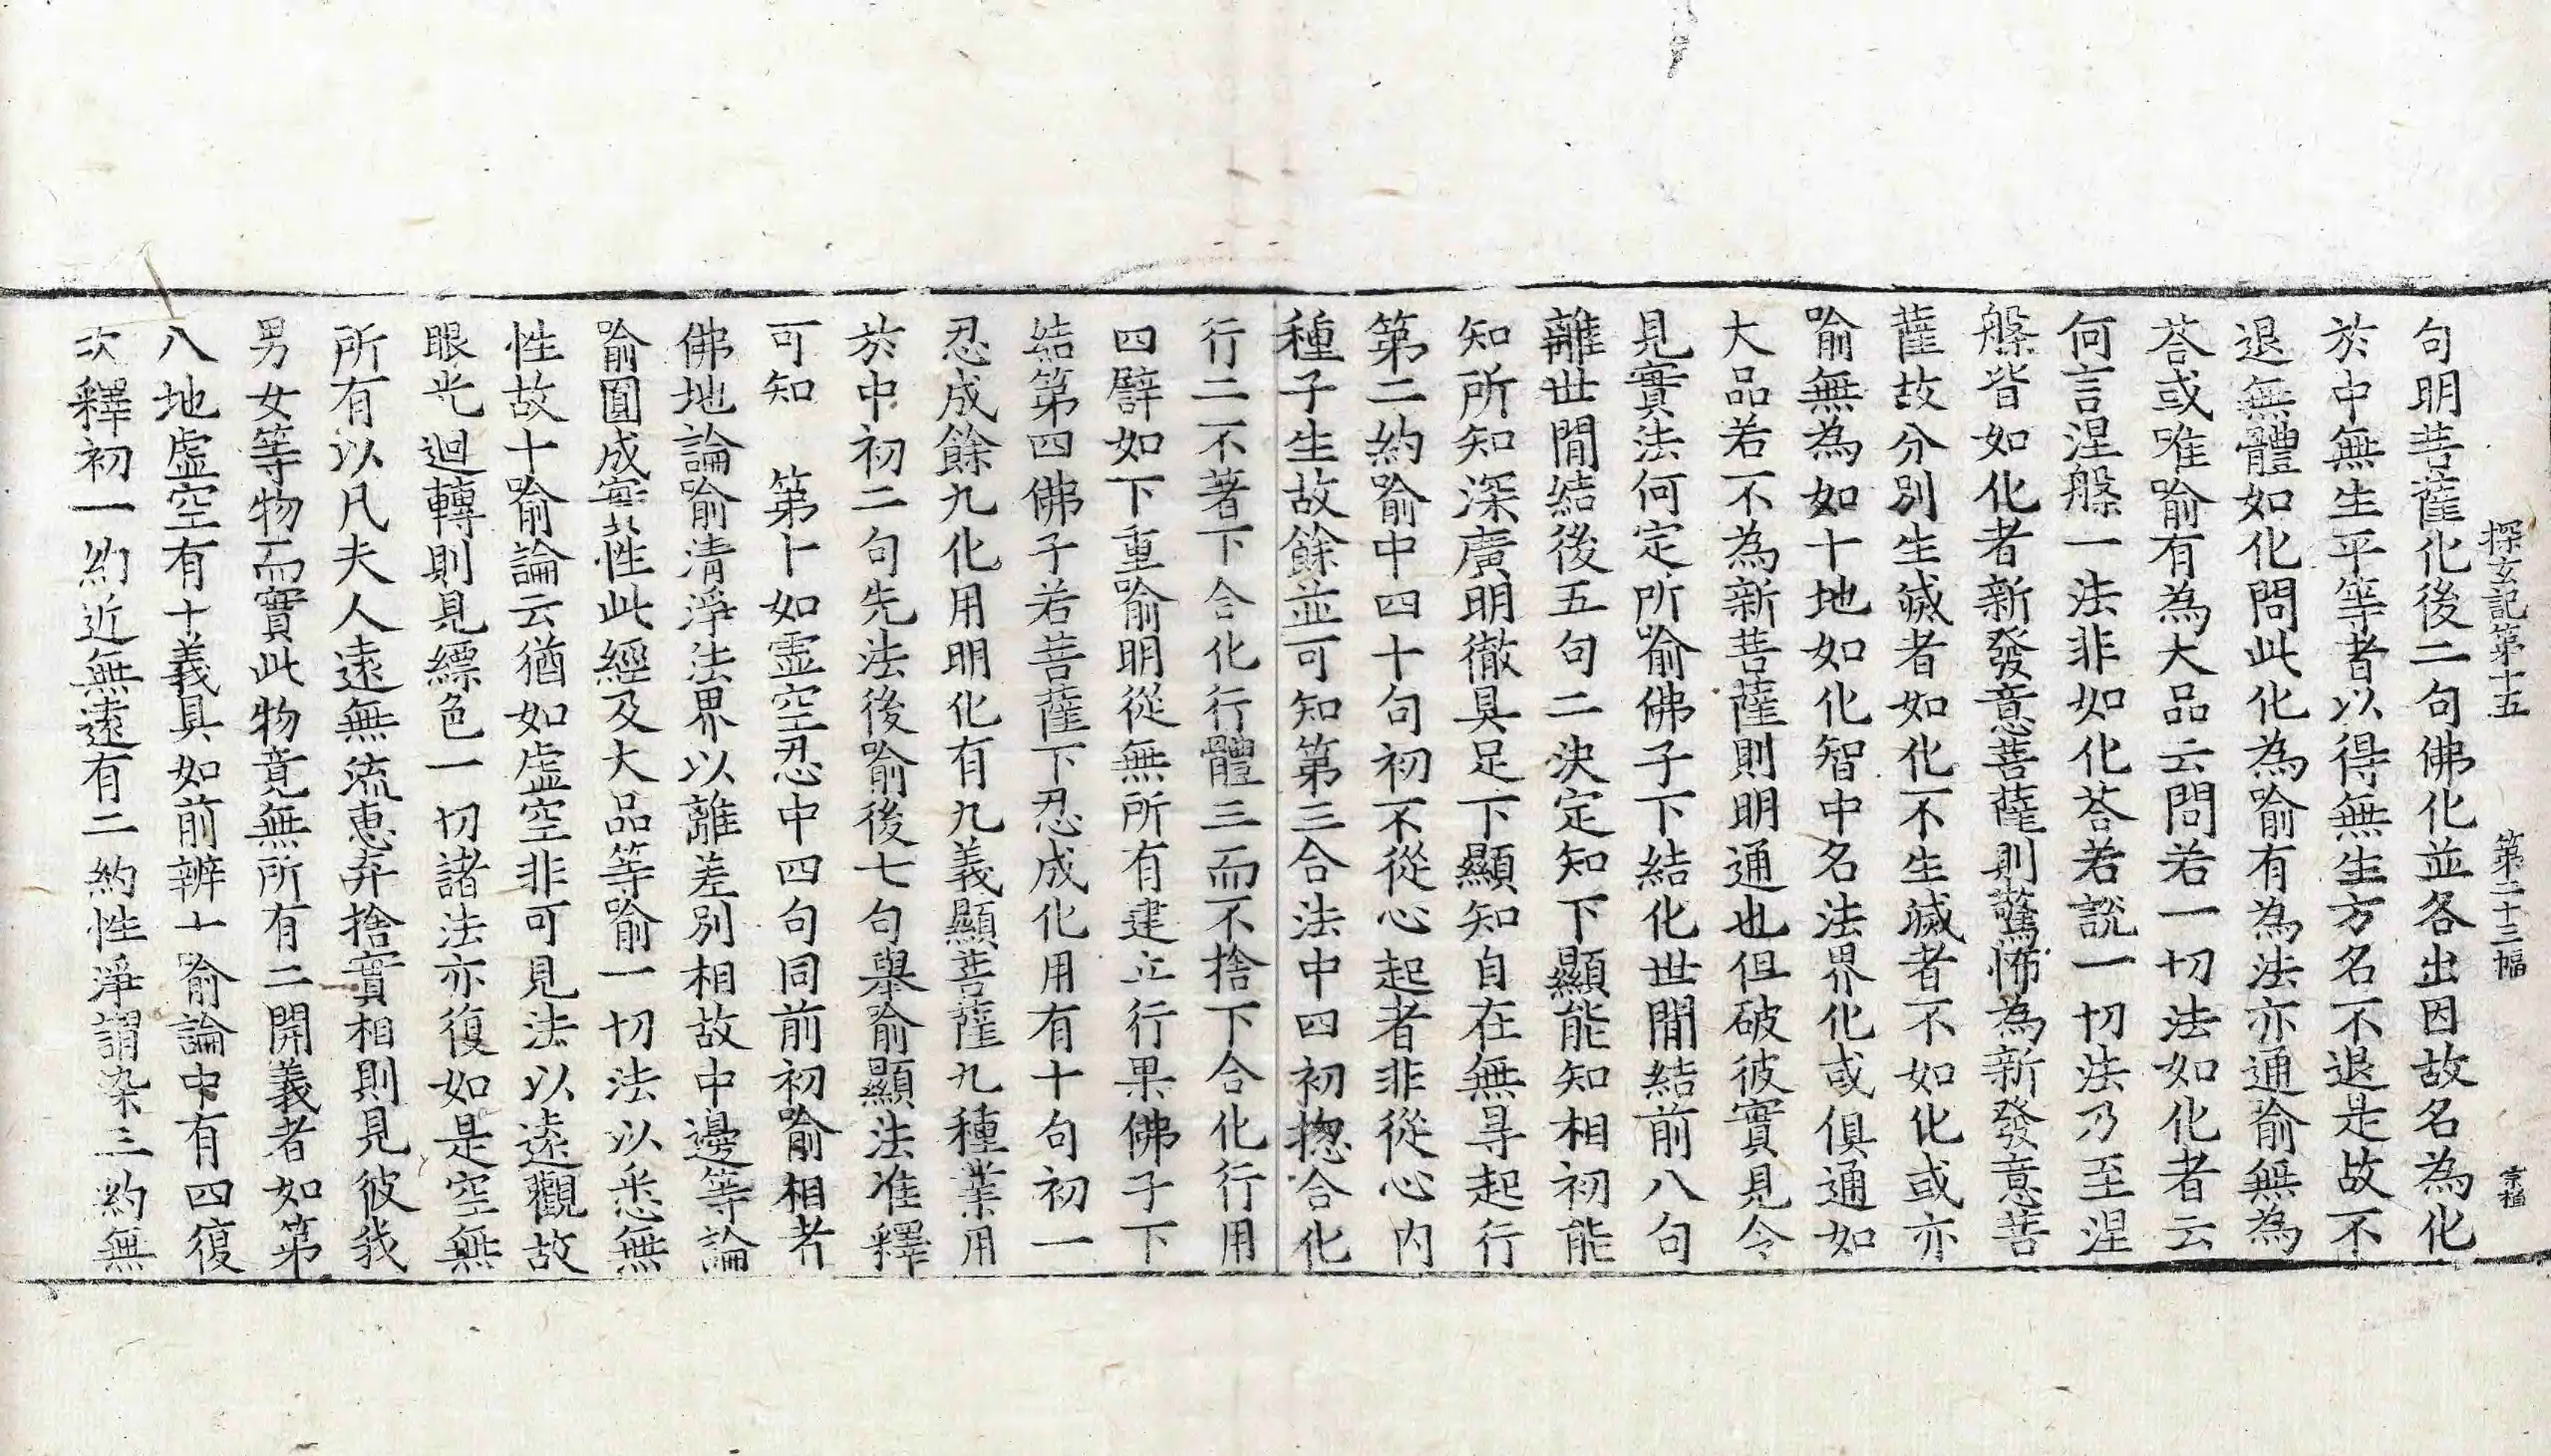 探玄記第十五　第二十三幅　宗植
句明菩薩化後二句佛化並各出因故名為化
於中無生平等者以得無生方名不退是故不
退無體如化問此化為喻有為法亦通喻無為
荅或唯喻有為大品云問若一切法如化者云
何言涅槃一法非如化荅若說一切法乃至涅
槃皆如化者新發意菩薩則驚怖為新發意菩
薩故分別生滅者如化不生滅者不如化或亦
喻無為如十地如化智中名法界化或俱通如
大品若不為新菩薩則明通也但破彼實見令
見實法何定所喻佛子下結化世間結前八句
離世間結後五句二決定知下顯能知相初能
知所知深廣明徹具足下顯知自在無㝵起行
第二約喻中四十句初不從心起者非從心內
種子生故餘並可知第三合法中四初揔合化
行二不著下合化行體三而不捨下合化行用
四譬如下重喻明從無所有建立行果佛子下
結第四佛子若菩薩下忍成化用有十句初一
忍成餘九化用明化有九義顯菩薩九種業用
於中初二句先法後喻後七句舉喻顯法准釋
可知　第十如虛空忍中四句同前初喻相者
佛地論喻清淨法界以離差別相故中邊等論
喻圓成實性此經及大品等喻一切法以悉無
性故十喻論云猶如虛空非可見法以遠觀故
眼光迴轉則見縹色一切諸法亦復如是空無
所有以凡夫人遠無流惠弃捨實相則見彼我
男女等物而實此物竟無所有二開義者如第
八地虛空有十義具如前辨十喻論中有四復
次釋初一約近無遠有二約性淨謂染三約無